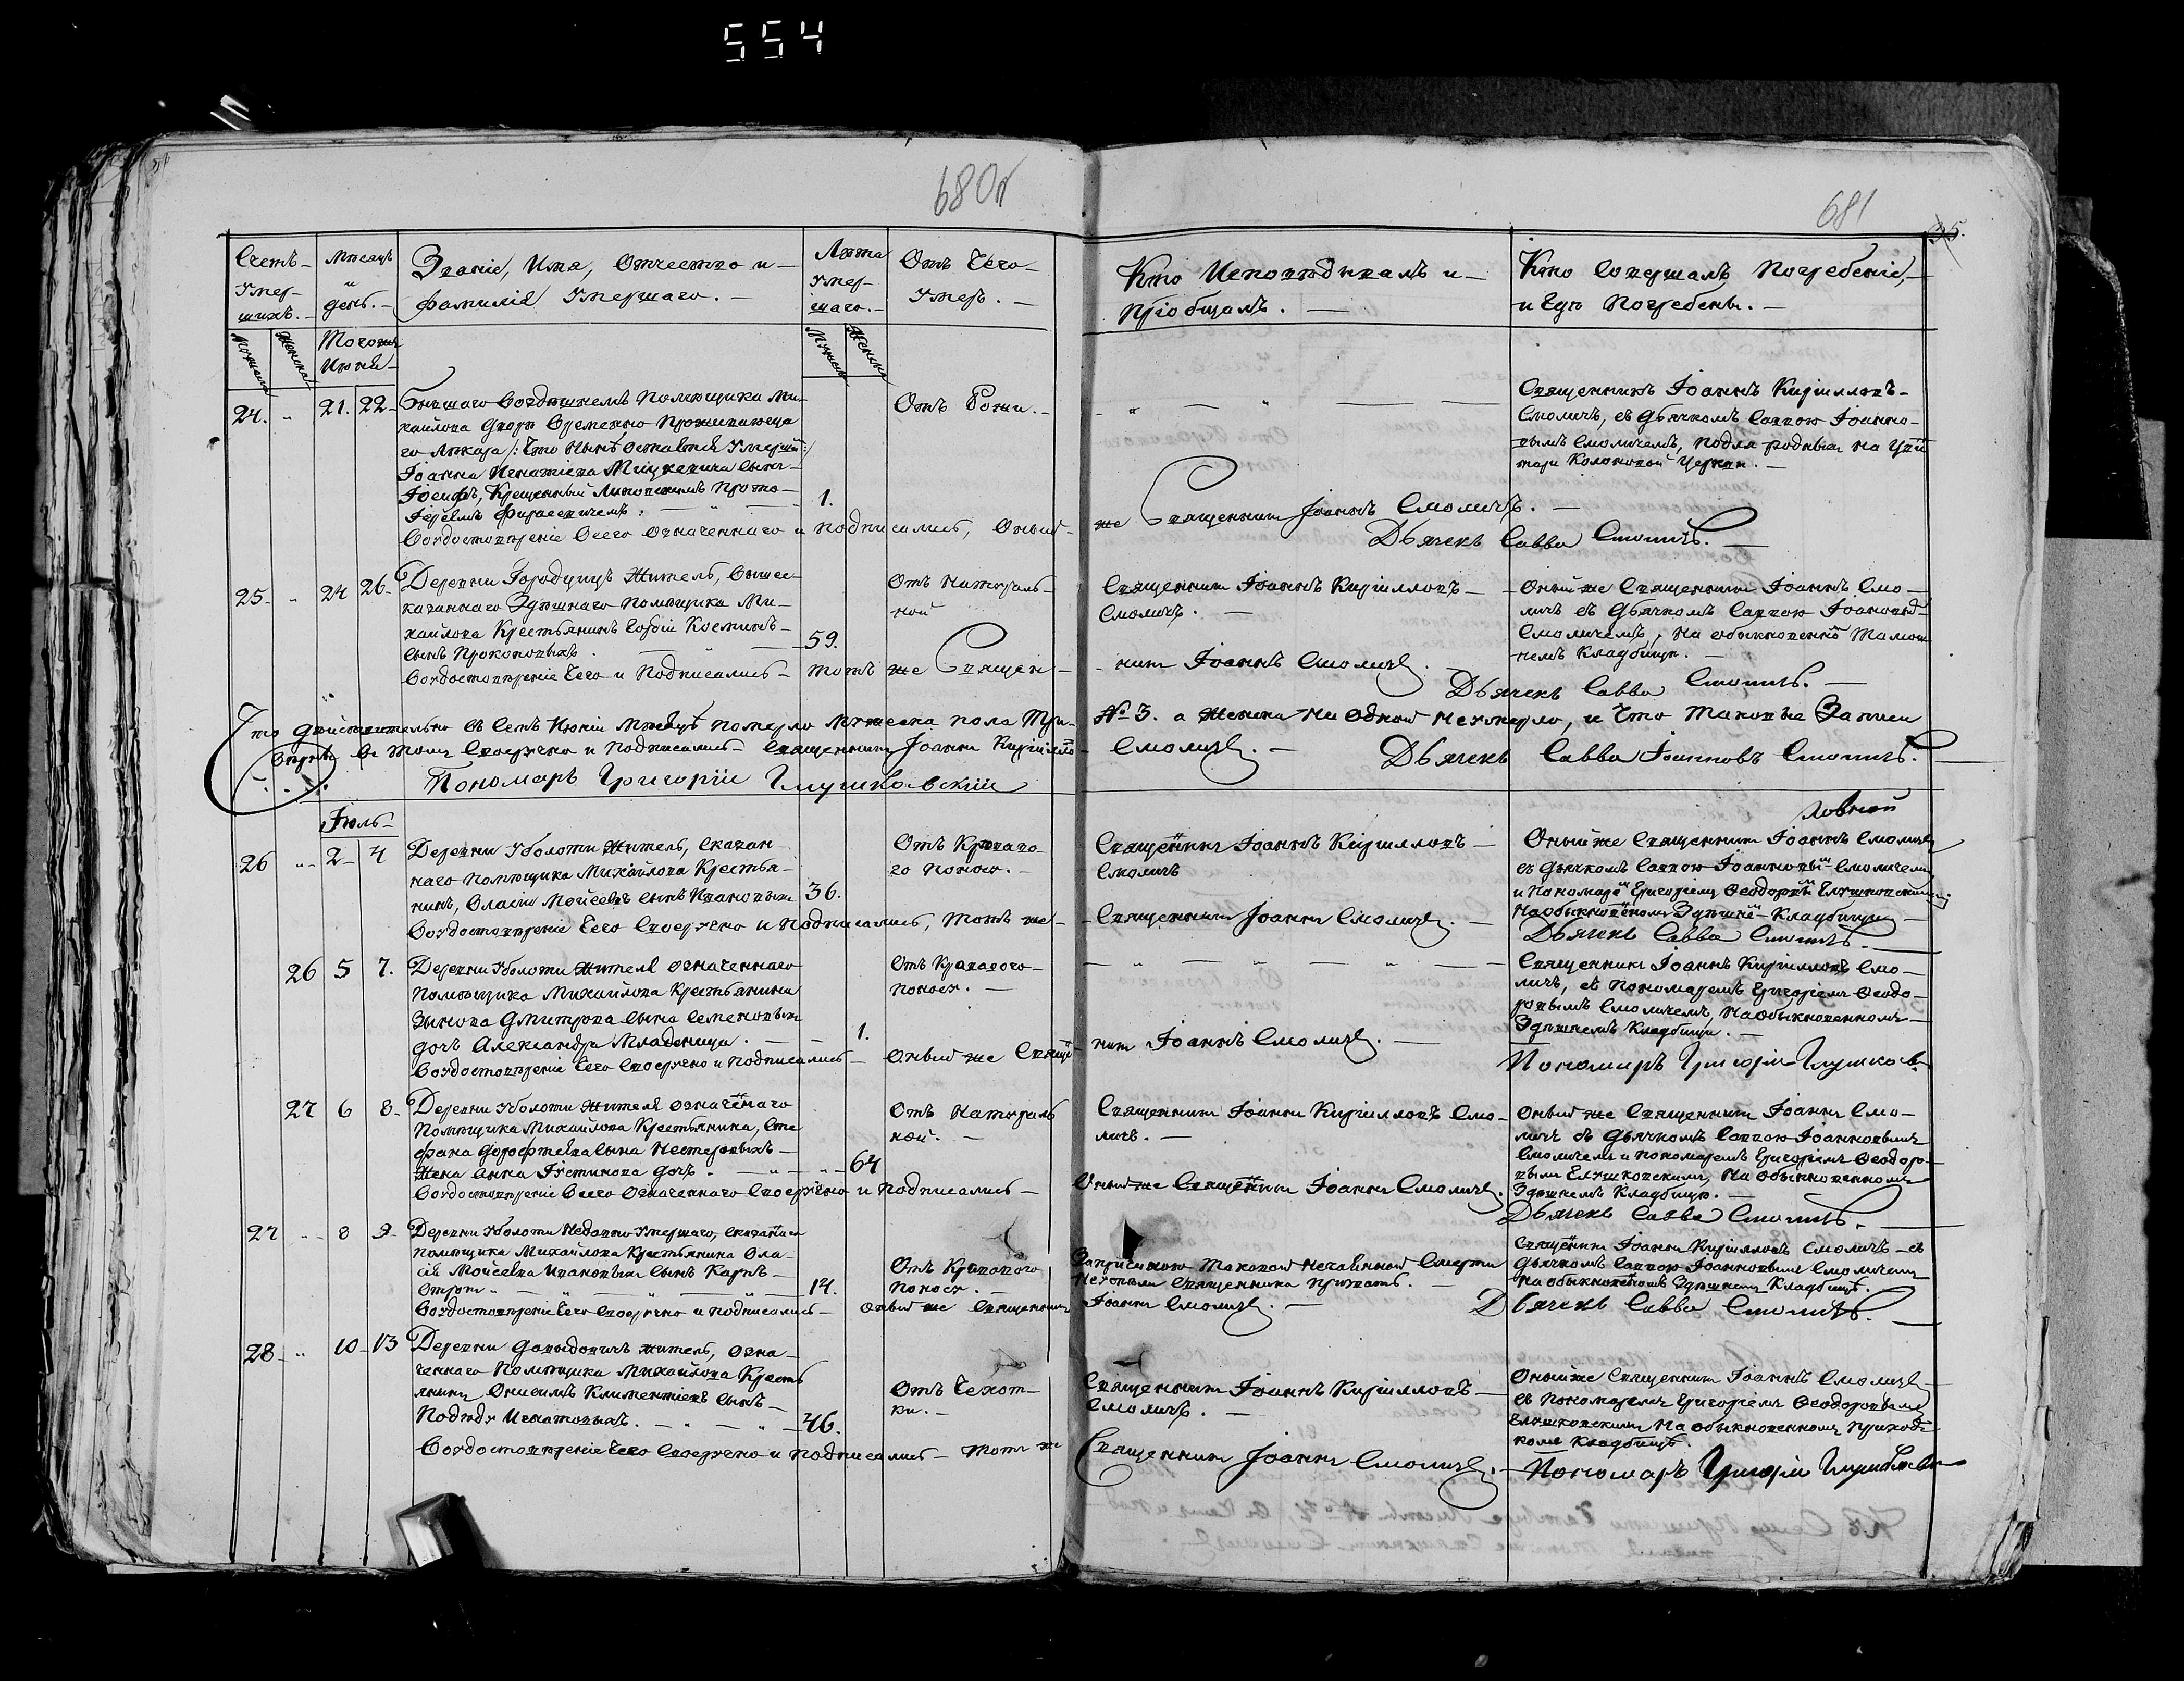 554
680
681
35.
Счетъ
Умер-
шихъ. -
Мѣсяцъ
и
день. -
Званіе, Имя, Отчество и -
фамилія Умершаго. -
Лѣта
Умер-
шаго. -
Отъ Чего -
Умеръ. -
Кто Исповѣдывалъ и -
пріобщалъ. -
Кто Совершалъ Погребеніе, -
и Гдѣ Погребены. -
Іюнія -
24. " 21. 22.
Помѣщика Ми-
хайлова двора Временно
Іоанна Игнатіева Мицкевича сынъ -
Іосифъ, Крещенный Прото-
Іереемъ
1.
Отъ Рожи. -
Священникъ Іоаннъ Кирилловъ -
Смоличъ, съ дьячкомъ Саввою Іоанно-
вымъ Смоличемъ, подля на
Церкви. -
Вогдостовѣреніе Всего Означеннаго и подписались, Оный -
же Священникъ Іоаннъ Смоличъ. -
Дьячекъ Савва Смоличъ. -
25. " 24 26
Деревни Городищъ Житель,
Помѣщика Ми-
хайлова Крестьянинъ Косминъ -
сынъ Прокоповыхъ.
59.
Отъ Натураль-
ной
Священникъ Іоаннъ Кирилловъ -
Смоличъ. -
Оный же Священникъ Іоаннъ Смо-
личъ съ дьячкомъ Саввою
Смоличемъ, На обыкновенномъ
Кладбищѣ. -
Вогдостовѣреніе Чего и Подписались - тотъ же Священ-
никъ Іоаннъ Смоличъ. -
Дьячекъ Савва Смоличъ. -
Что дѣйствительно Въ Семъ Іюніи Мѣсяцѣ померло Мужеска пола Три -
№ 3. а Женска Ни Одной Непомерло, и Что Таковые Записи
Вѣрны Въ томъ Своеручно и Подписались - Священникъ Іоаннъ Кирилловъ
Смоличъ. - Дьячекъ Савва Іоанновъ Смоличъ.
Пономарь Григорій Глушковскій
Іюль -
26 " 2 4
Деревни Уболоти Житель, Сказан-
наго Помѣщика Михайлова Крестья-
нинъ, Власій Моисеевъ сынъ Ивановыхъ
36.
Отъ Кроваво-
го поноса. -
Священникъ Іоаннъ Кирилловъ -
Смоличъ
Оный же Священникъ Іоаннъ Смоличъ
съ дьячкомъ Саввою Іоанновымъ Смоличемъ
и Пономаремъ Григоріемъ Ѳеодоровымъ Глушковскимъ
На обыкновенномъ Здѣшнемъ Кладбищѣ
Вогдостовѣреніе Чего Своеручно и Подписались, Тотъ же -
Священникъ Іоаннъ Смоличъ. -
Дьячекъ Савва Смоличъ. -
26 5 7.
Деревни Уболоти Жителя означеннаго
Помѣщика Михайлова Крестьянина
Зынова Дмитрова сына Семеновыхъ
дочь Александра Младеница. -
1.
Отъ Крававаго -
поноса. -
Священникъ Іоаннъ Кирилловъ Смо-
личъ, съ Пономаремъ Григоріемъ Ѳеодо-
ровымъ Смоличемъ, На обыкновенномъ -
Здѣшнемъ Кладбищѣ. -
Вогдостовѣреніе Чего Своеручно и Подписались - Оный же Священ-
никъ Іоаннъ Смоличъ. -
Пономарь Григорій Глушков.
27 6 8
Деревни Уболоти Жителя означеннаго
Помѣщика Михайлова Крестьянина, Сте-
фана Дорофтеева сына Нестеровыхъ -
Жена Анна Іустинова дочь. -
64
Отъ Натураль
ной. -
Священникъ Іоаннъ Кирилловъ Смо-
личъ. -
Оный же Священникъ Іоаннъ Смо-
личъ съ дьячкомъ Саввою Іоанновымъ
Смоличемъ и пономаремъ Григоріемъ Ѳеодоро-
вымъ Глушковскимъ, На обыкновенномъ
Здѣшнемъ Кладбищѣ. -
Вогдостовѣреніе Всего Означеннаго Своеручно и Подписались -
Оный же Священникъ Іоаннъ Смоличъ.
Дьячекъ Савва Смоличъ. -
27 " 8 9
Деревни Уболоти Недавно Умершаго, Сказаннаго
Помѣщика Михайлова Крестьянина Вла-
сія Моисеева Ивановыхъ сынъ Карпъ -
Отрокъ -
14.
Отъ Крававаго
поноса. -
Запричиною Таковой Нечаянной Смерти
Священника призвать. -
Священникъ Іоаннъ Кирилловъ Смоличъ - съ
дьячкомъ Саввою Іоанновымъ Смоличемъ
На обыкновенномъ Здѣшнемъ Кладбищѣ.
Вогдостовѣреніе Чего Своеручно и подписались - Оный же Священникъ
Іоаннъ Смоличъ. -
Дьячекъ Савва Смоличъ. -
28 " 10 13
Деревни Давыдовичъ Житель, Озна-
ченнаго Помѣщика Михайлова Кресть
янинъ Онисимъ Климентіевъ сынъ -
Игнатовыхъ. -
46.
Отъ Чехот-
ки. -
Священникъ Іоаннъ Кирилловъ -
Смоличъ. -
Оный же Священникъ Іоаннъ Смоличъ
съ Пономаремъ Григоріемъ Ѳеодоровымъ
Глушковскимъ На обыкновенномъ приход-
комъ Кладбищѣ.
Вогдостовѣреніе Чего Своеручно и подписались - Тотъ же
Священникъ Іоаннъ Смоличъ. -
Пономарь Григорій Глушковск